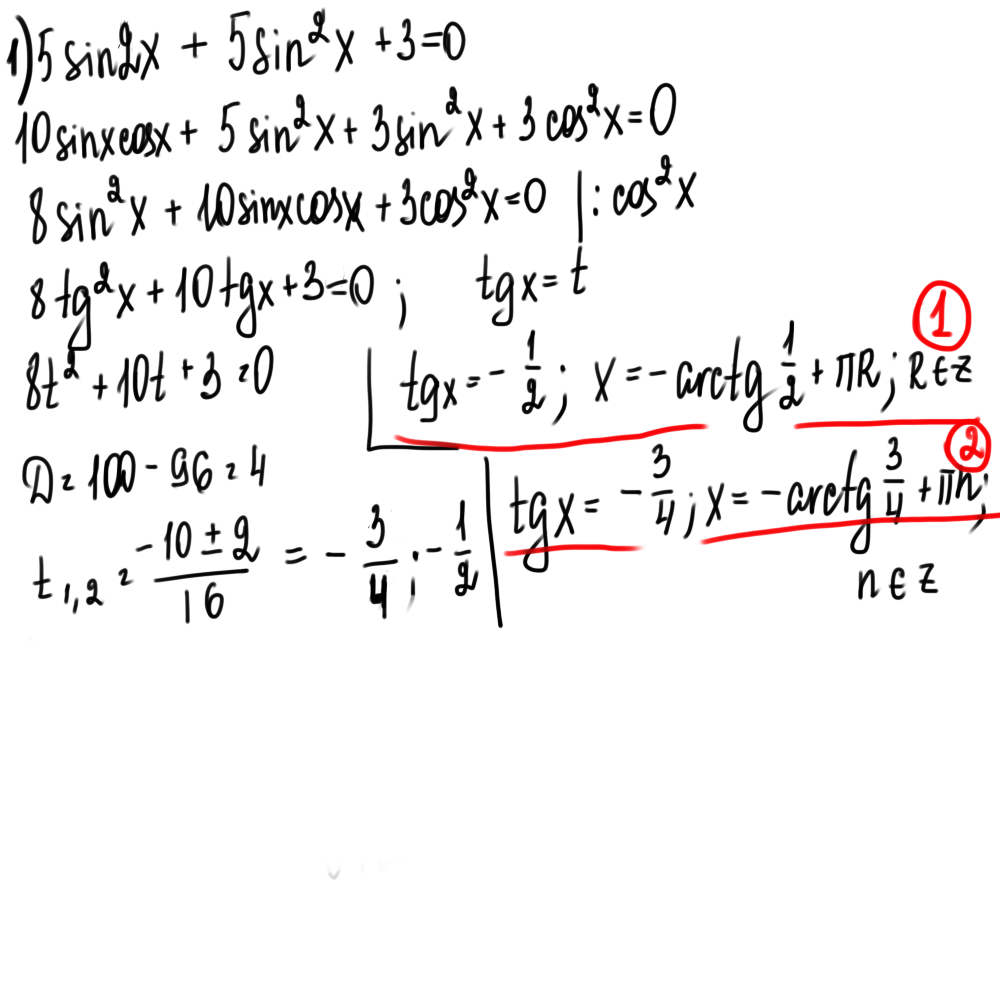 1) 5 sin2x + 5 sin²x + 3 = 0
10 sinxcosx + 5 sin²x + 3 sin²x + 3 cos²x = 0
8 sin²x + 10 sinxcosx + 3cos²x = 0 | : cos²x
8 tg²x + 10 tgx + 3 = 0 ; tgx = t
8t² + 10t + 3 = 0
D = 100 - 96 = 4
t₁,₂ = (-10 ± 2)/16 = - 3/4 ; - 1/2
tgx = - 1/2 ; x = - arctg 1/2 + πk ; k ∈ Z
1
tgx = - 3/4 ; x = - arctg 3/4 + πn ;
2
n ∈ Z